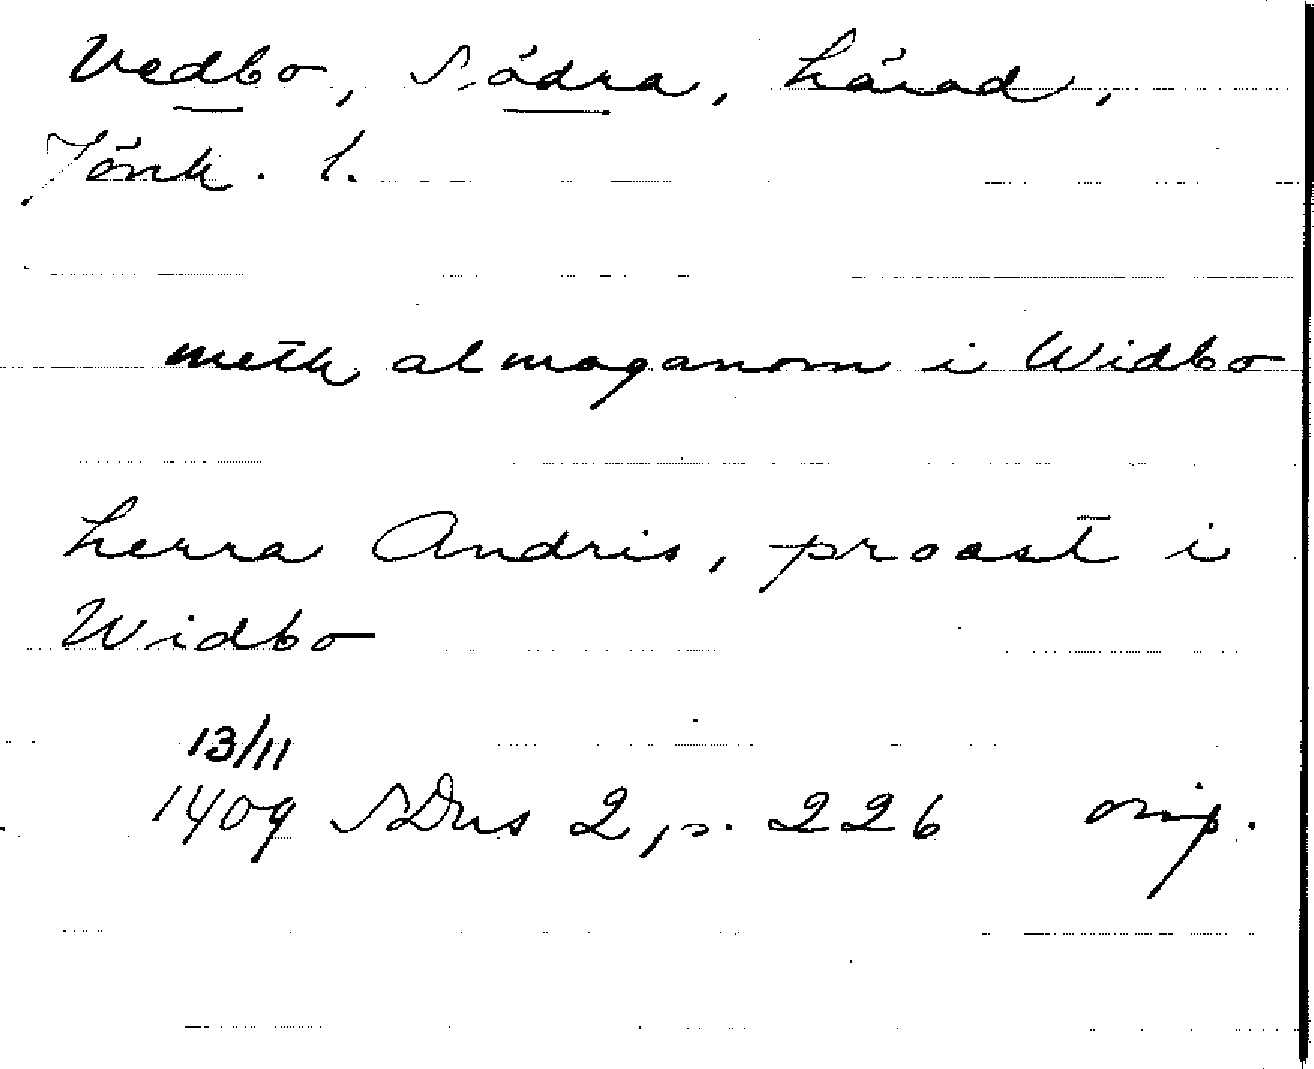 Vedbo, Södra, härad,
Jönk. l.
meth almoganom i Widbo
herra Andris, proast i
Widbo
13/11
1409 SDns 2, s. 226 orig.